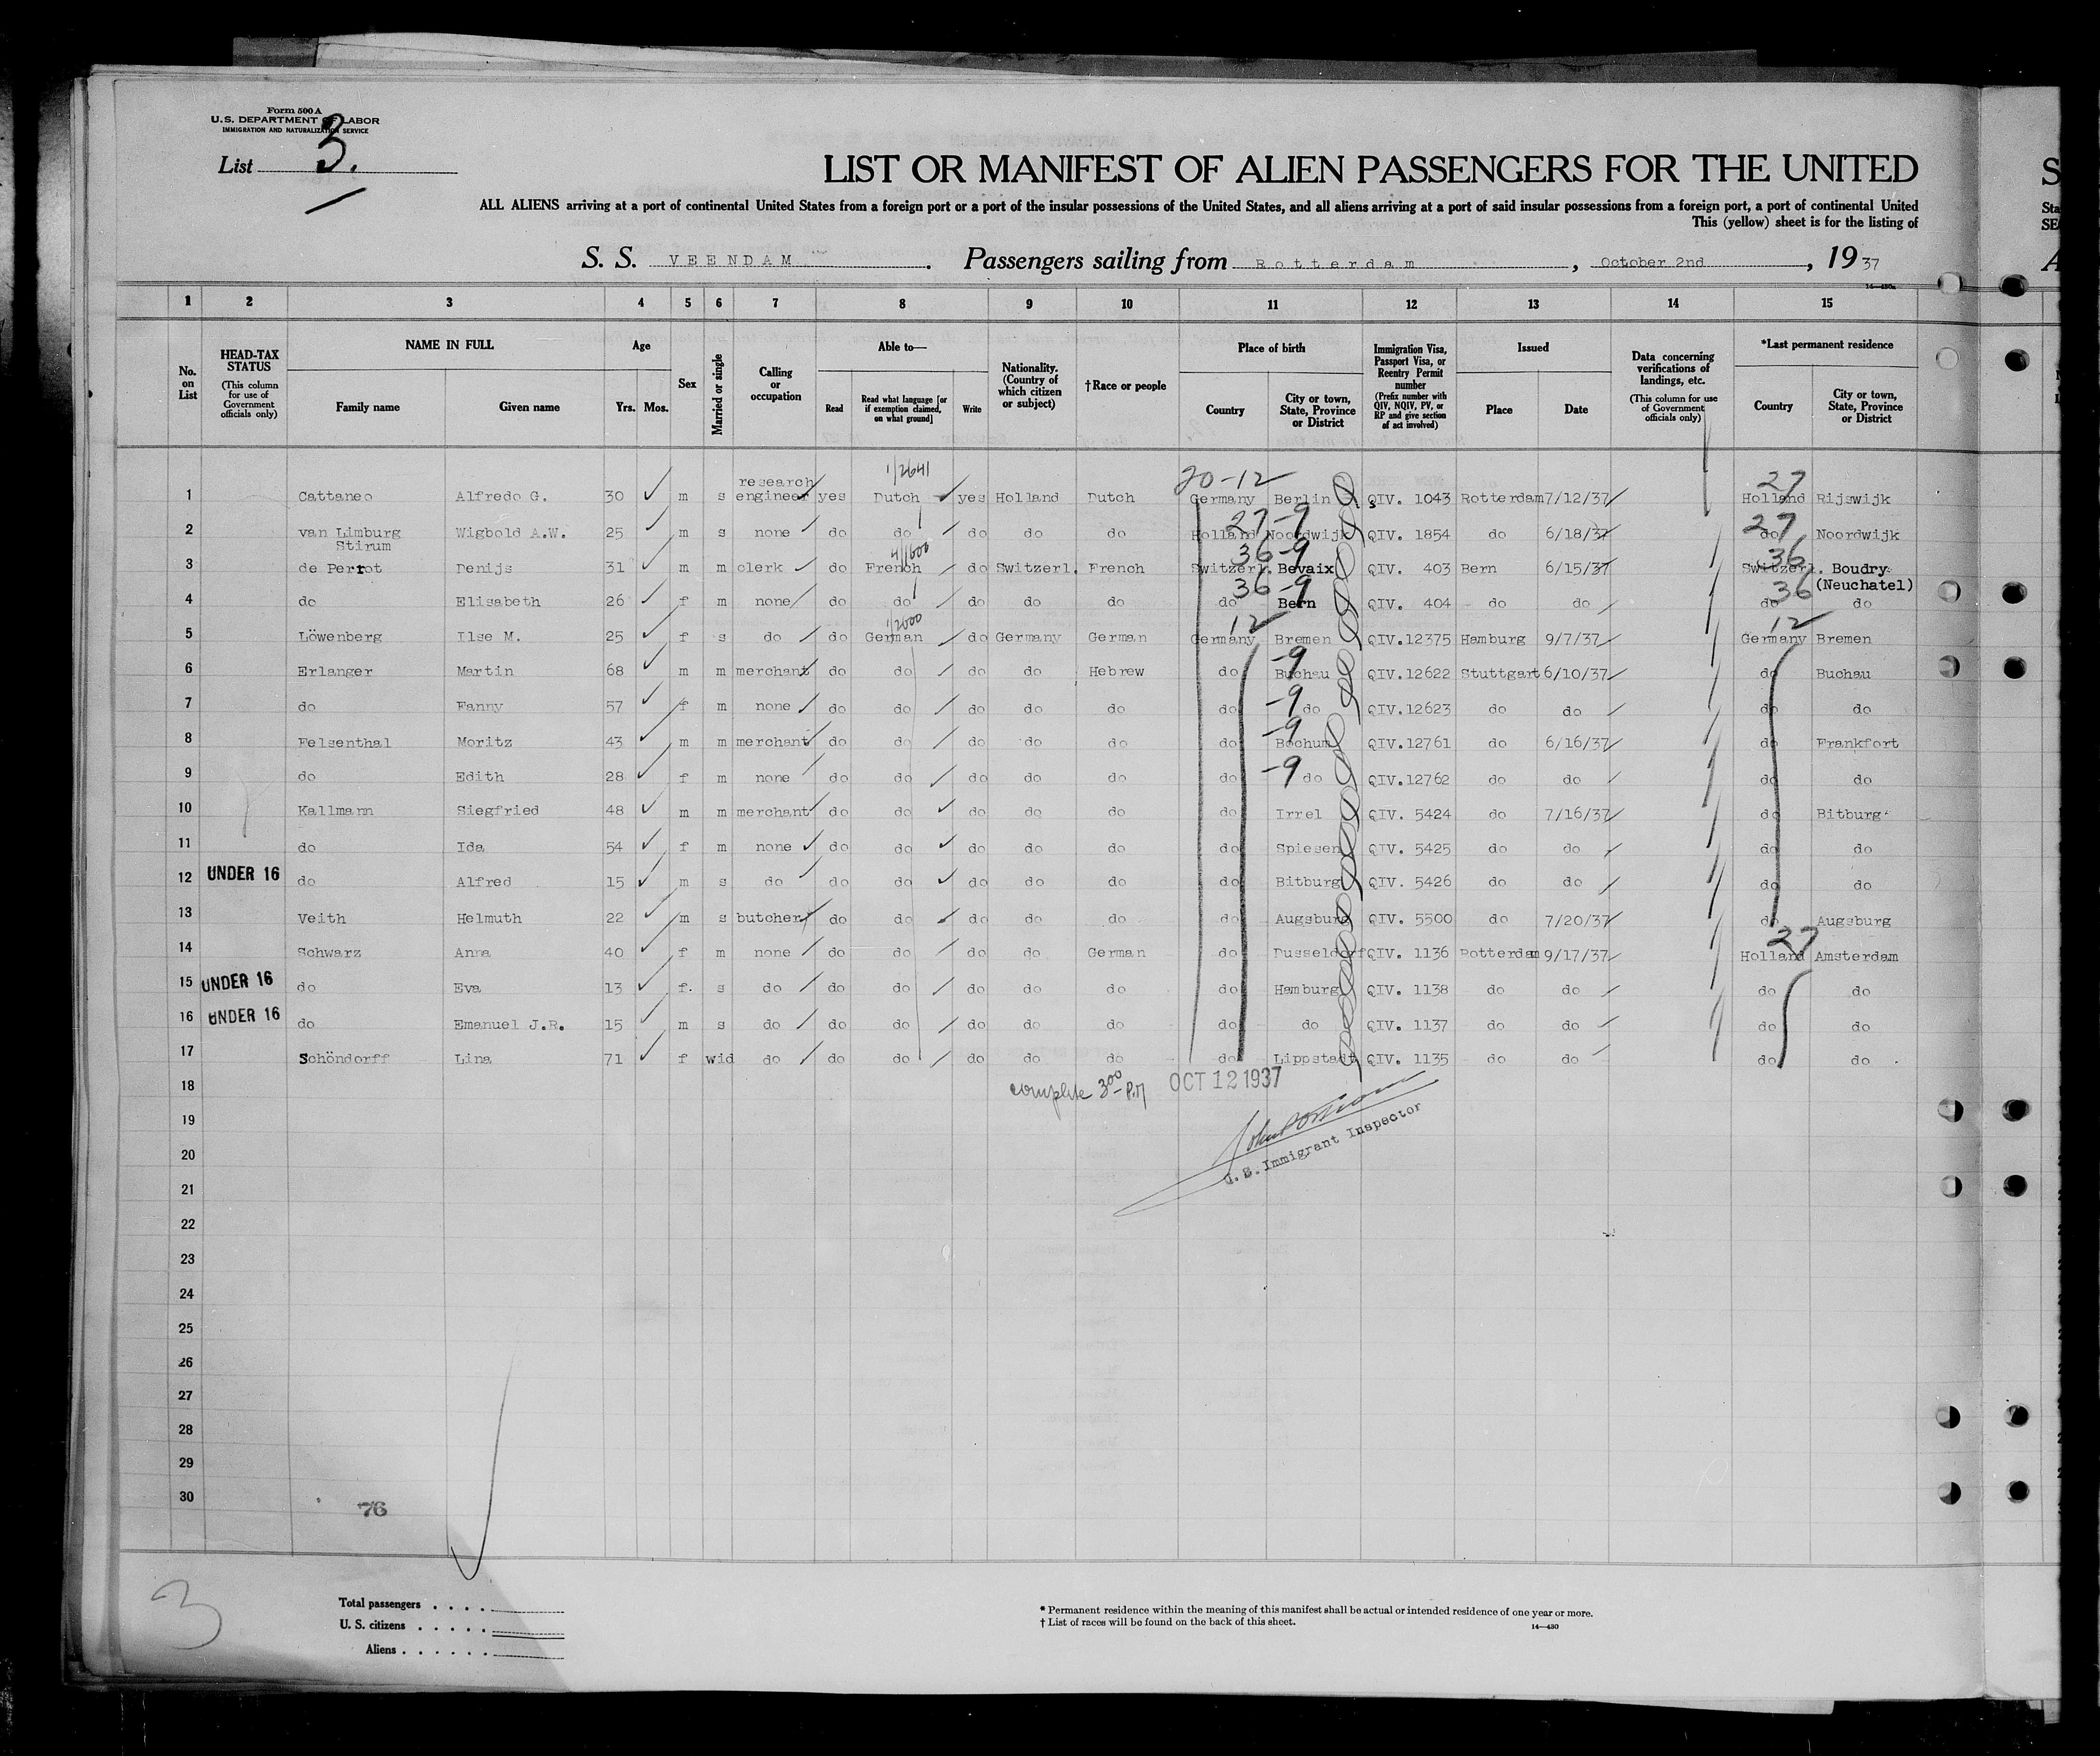 Form 500 A
U.S. DEPARTMENT OF LABOR
IMMIGRATION AND NATURALIZATION SERVICE
List 3.
LIST OR MANIFEST OF ALIEN PASSENGERS FOR THE UNITED
ALL ALIENS arriving at a port of continental United States from a foreign port or a port of the insular possessions of the United States, and all aliens arriving at a port of said insular possessions from a foreign port, a port of continental United
This (yellow) sheet is for the listing of
S. S. VEENDAM. Passengers sailing from Rotterdam, October 2nd, 1937
14—430a
1 2 3 4 5 6 7 8 9 10 11 12 13 14 15
No. on List
HEAD-TAX STATUS (This column for use of Government officials only)
NAME IN FULL
Family name Given name
Age
Yrs. Mos.
Sex
Married or single
Calling or occupation
Able to—
Read
Read what language [or if exemption claimed, on what ground]
Write
Nationality. (Country of which citizen or subject)
†Race or people
Place of birth
Country
City or town, State, Province or District
Immigration Visa, Passport Visa, or Reentry Permit number (Prefix number with QIV, NQIV, PV, or RP and give section of act involved)
Issued
Place Date
Data concerning verifications of landings, etc. (This column for use of Government officials only)
*Last permanent residence
Country
City or town, State, Province or District
1/2641 20-12 27
1 Cattaneo Alfredo G. 30 m s research engineer yes Dutch yes Holland Dutch Germany Berlin QIV. 1043 Rotterdam 7/12/37 Holland Rijswijk
27-9 27
2 van Limburg Stirum Wigbold A.W. 25 m s none do do do do do Holland Noordwijk QIV. 1854 do 6/18/37 do Noordwijk
4/1600 36-9 36
3 de Perrot Denijs 31 m m clerk do French do Switzerl. French Switzerl. Bevaix QIV. 403 Bern 6/15/37 Switzerl. Boudry (Neuchatel)
36-9 36
4 do Elisabeth 26 f m none do do do do do do Bern QIV. 404 do do do do
1/2000 12 12
5 Löwenberg Ilse M. 25 f s do do German do Germany German Germany Bremen QIV.12375 Hamburg 9/7/37 Germany Bremen
-9
6 Erlanger Martin 68 m m merchant do do do do Hebrew do Buchau QIV.12622 Stuttgart 6/10/37 do Buchau
-9
7 do Fanny 57 f m none do do do do do do do QIV.12623 do do do do
-9
8 Felsenthal Moritz 43 m m merchant do do do do do do Bochum QIV.12761 do 6/16/37 do Frankfort
-9
9 do Edith 28 f m none do do do do do do do QIV.12762 do do do do
10 Kallmann Siegfried 48 m m merchant do do do do do do Irrel QIV. 5424 do 7/16/37 do Bitburg
11 do Ida 54 f m none do do do do do do Spiesen QIV. 5425 do do do do
12 UNDER 16 do Alfred 15 m s do do do do do do do Bitburg QIV. 5426 do do do do
13 Veith Helmuth 22 m s butcher do do do do do do Augsburg QIV. 5500 do 7/20/37 do Augsburg
27
14 Schwarz Anna 40 f m none do do do do German do Dusseldorf QIV. 1136 Rotterdam 9/17/37 Holland Amsterdam
15 UNDER 16 do Eva 13 f. s do do do do do do do Hamburg QIV. 1138 do do do do
16 UNDER 16 do Emanuel J.R. 15 m s do do do do do do do do QIV. 1137 do do do do
17 Schöndorff Lina 71 f wid do do do do do do do Lippstadt QIV. 1135 do do do do
18 complete 3 00 P.M OCT 12 1937
19
20 U.S. Immigrant Inspector
21
22
23
24
25
26
27
28
29
30
76
3
Total passengers . . . .
U. S. citizens . . . . .
Aliens . . . . . .
* Permanent residence within the meaning of this manifest shall be actual or intended residence of one year or more.
† List of races will be found on the back of this sheet.
14—430
S
Sta
SE
A